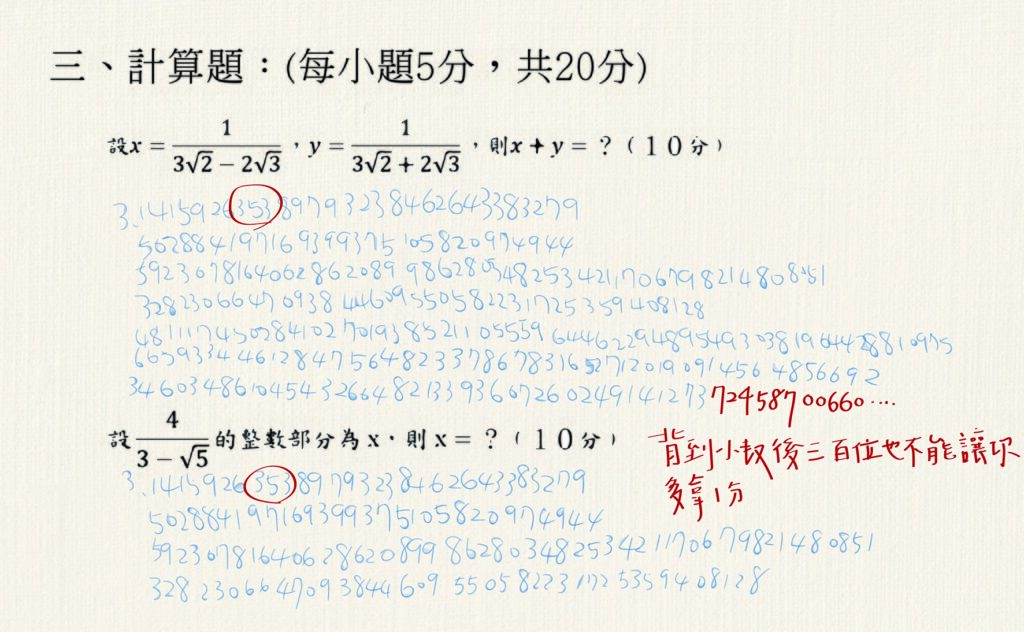 三、計算題：(每小題5分，共20分)
設x = 1/(3√2 − 2√3)，y = 1/(3√2 + 2√3)，則x + y = ？（10分）
3.141592635389793238462643383279
502884197169399375105820974944
5923078164062862089986280348253421170679821480851
328230664709384460955058223172535940 8128
481117450284102701938521105559644622948954930381964428810975
66593344612847564823378678316527120190914564856692
34603486104543266482133936072602491412737245870 0660....
設 4/(3 − √5) 的整數部分為 x，則 x = ？（10分）
背到小數後三百位也不能讓你
多拿1分
3.141592635389793238462643383279
502884197169399375105820974944
59230781640628620899862803482534211706798214 80851
328230664709384460955058223172535940 8128